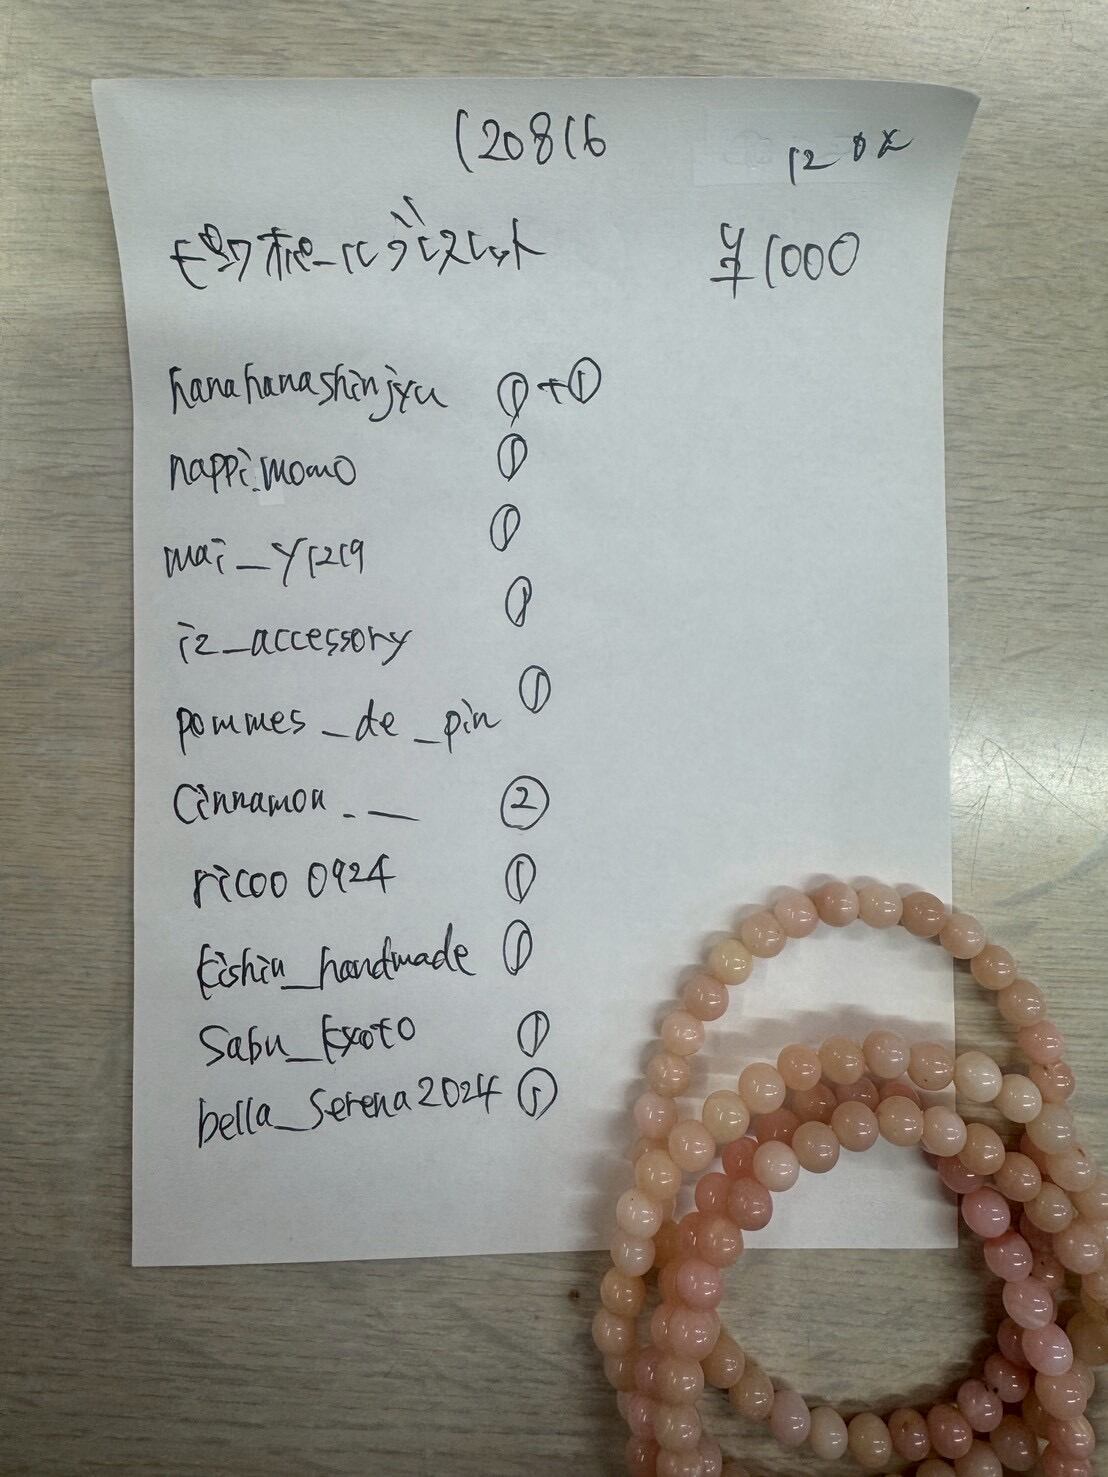 120816
ピンクオパールブレスレット ¥1000
hanahanashinjyu ①+①
nappi.momo ①
mai_y1219 ①
iz_accessory ①
pommes_de_pin ①
Cinnamon.__ ②
ricoo 0924 ①
kishin_handmade ①
Sabu_kyoto ①
bella_serena2024 ①